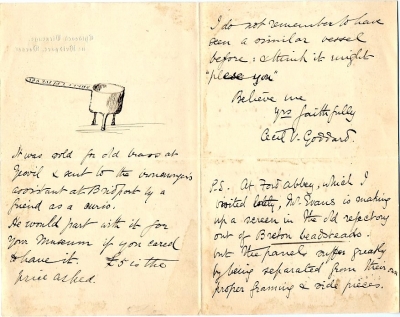 It was sold for old brass at
Yeovil & sent to the ironmonger's
assistant at Bridport by a
friend as a curio.
He would part with it for
your Museum if you cared
to have it. £5 is the
price asked.
I do not remember to have
seen a similar vessel
before: & think it might
"please you"
Believe me
Yrs faithfully
Cecil V. Goddard.
P.S. At Ford Abbey, which I
visited lately, Mr. Evans is making
up a screen in the old refectory
out of Breton bedsteads.
but the panels suffer greatly
by being separated from their own
proper framing & side pieces.